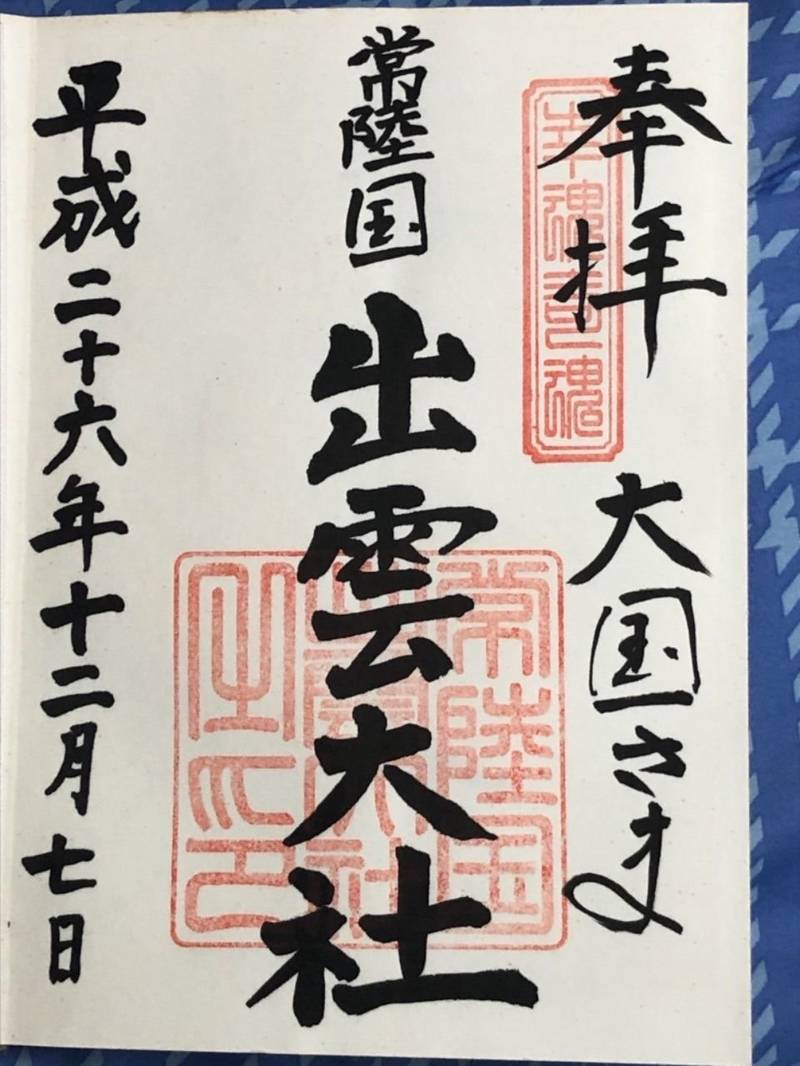 奉拝
大国さま
幸魂奇魂
常陸国
出雲大社
常陸国
出雲大社
之印
平成二十六年十二月七日